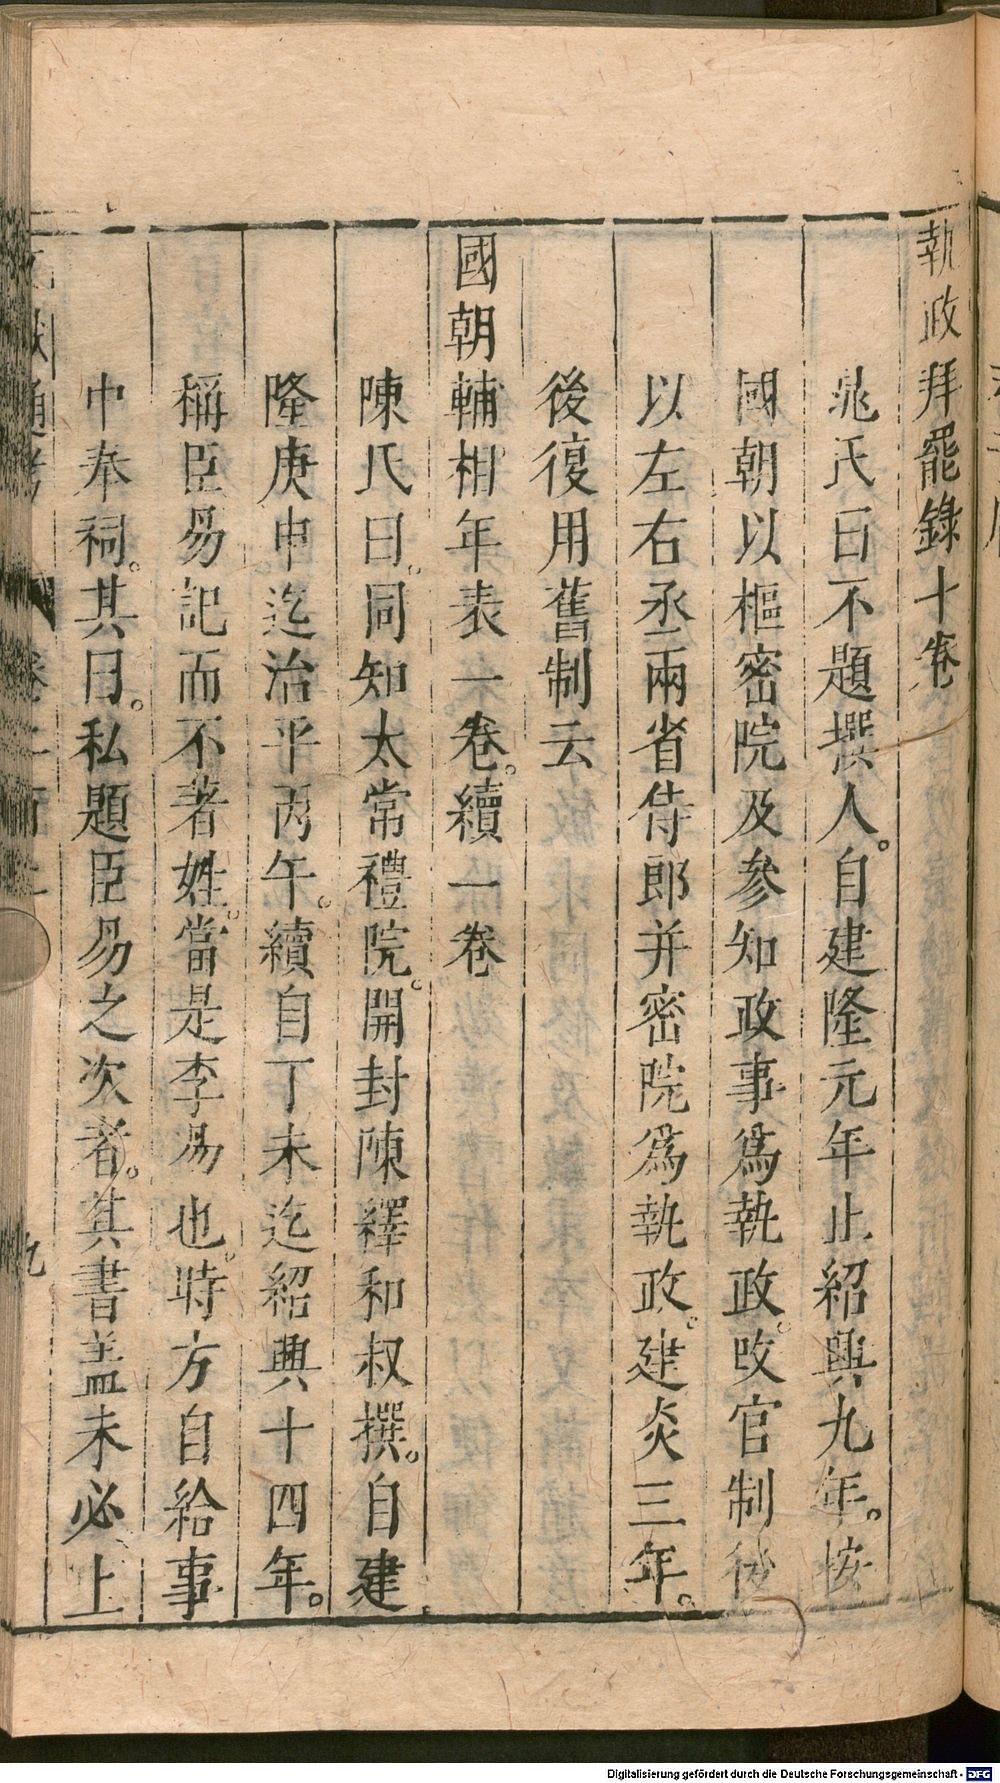 執政拜罷錄十卷
晁氏曰不題撰人。自建隆元年止紹興九年。按
國朝以樞密院及參知政事爲執政。改官制後
以左右丞兩省侍郎并密院爲執政。建炎三年。
後復用舊制云
國朝輔相年表一卷。續一卷
陳氏曰。同知太常禮院。開封陳繹和叔撰。自建
隆庚申。迄治平丙午。續自丁未迄紹興十四年。
稱臣易記而不著姓。當是李易也。時方自給事
中奉祠。其曰。私題臣易之次者。其書盖未必上
通考 卷二百二 九
Digitalisierung gefördert durch die Deutsche Forschungsgemeinschaft - DFG